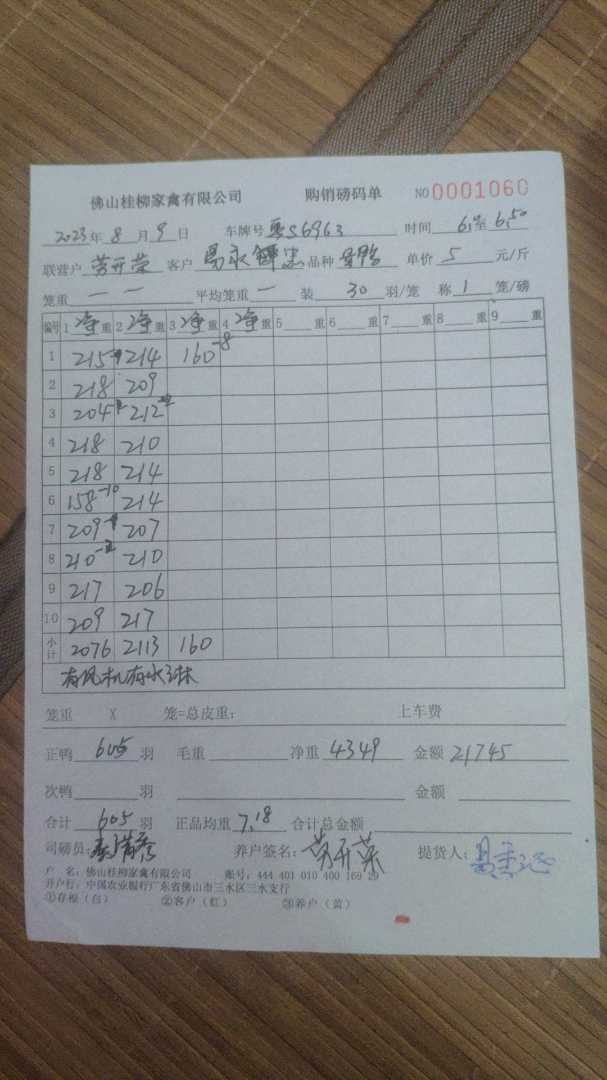 佛山桂柳家禽有限公司 购销磅码单 NO 0001060
2023年 8 月 9 日 车牌号 粤S6963 时间 6:10至6:50
联营户 劳开荣 客户 易永 品种 单价 5 元/斤
笼重 一 一 平均笼重 一 装 30 羽/笼 称 1 笼/磅
编号 1 净重 2 净重 3 净重 4 净重 5 重 6 重 7 重 8 重 9 重
1 215 214 160-8
2 218 209
3 204 212
4 218 210
5 218 214
6 158-10 214
7 209 207
8 210 210
9 217 206
10 209 217
小计 2076 2113 160
有风机有水淋
笼重 X 笼=总皮重: 上车费
正鸭 605 羽 毛重 净重 4349 金额 21745
次鸭 羽 金额
合计 605 羽 正品均重 7.18 合计总金额
司磅员: 养户签名: 劳开荣 提货人:
户 名: 佛山桂柳家禽有限公司 账号: 444 401 010 400 169 29
开户行: 中国农业银行广东省佛山市三水区三水支行
①存根(白) ②客户(红) ③养户(黄)